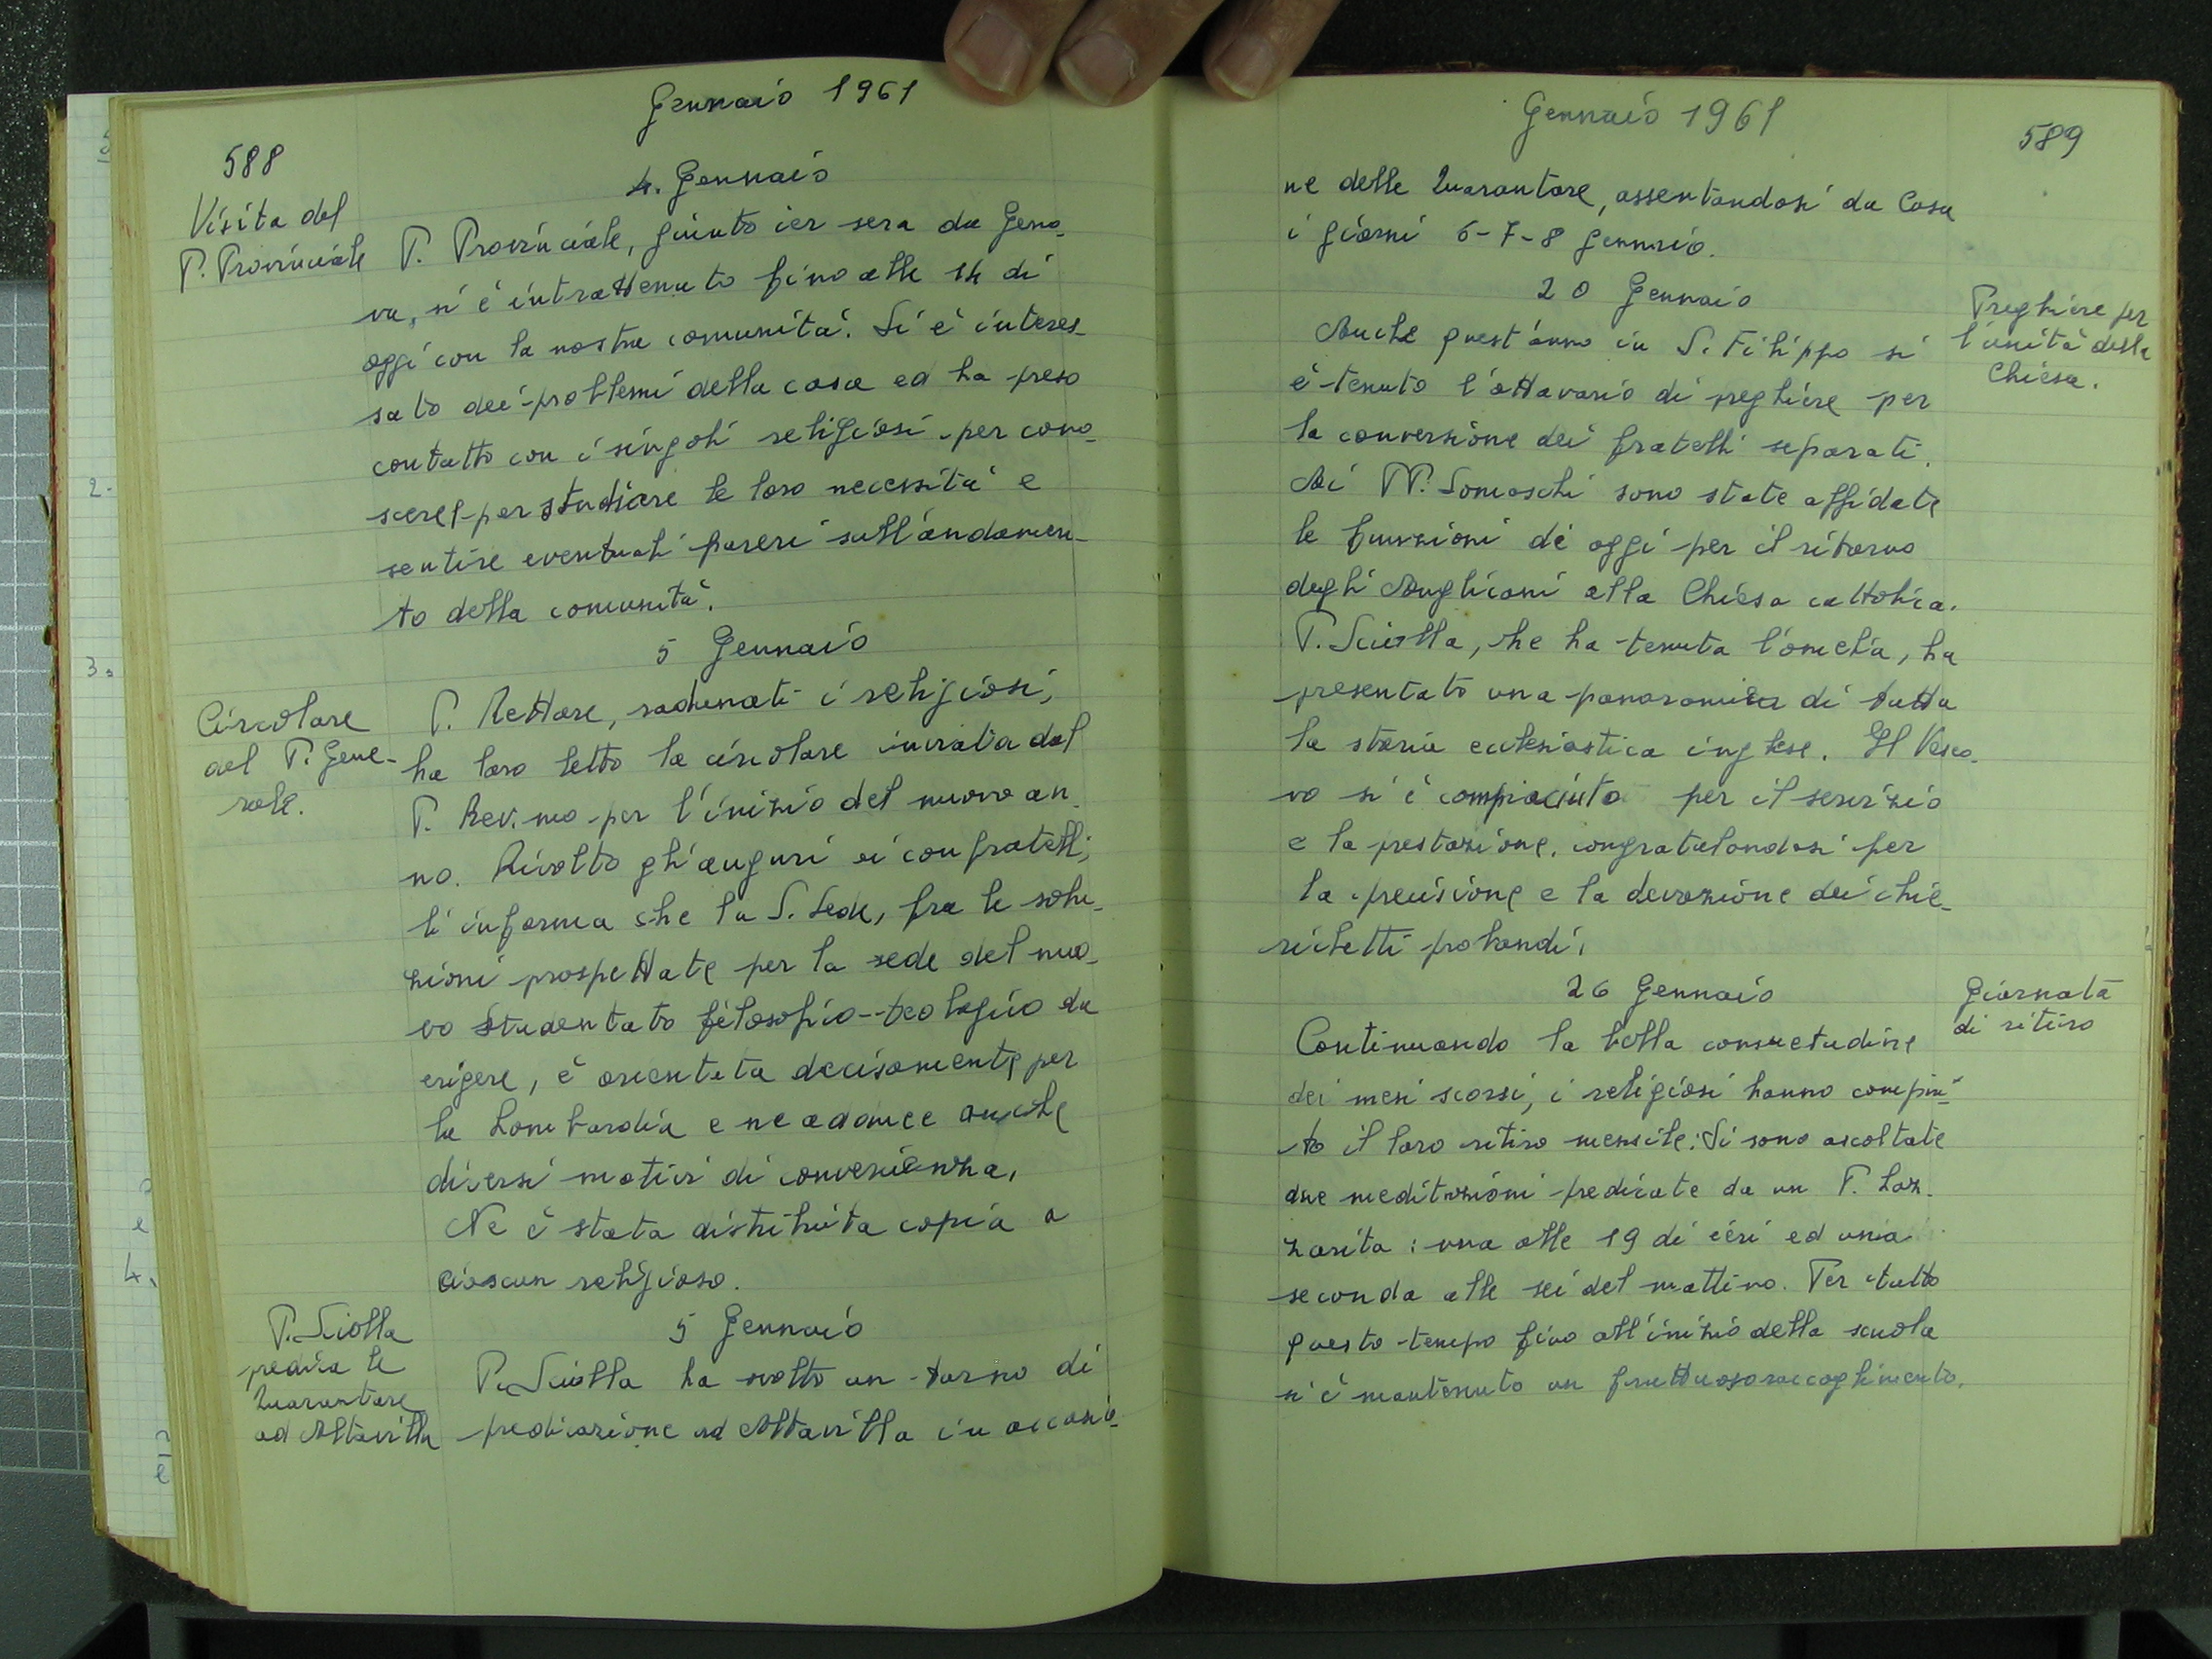 Gennaio 1961
588
4. Gennaio
Visita del
P. Provinciale
P. Provinciale, giunto ier sera da Geno-
va, si è intrattenuto fino alle 14 di
oggi con la nostra comunità. Si è interes-
sato dei problemi della casa ed ha preso
contatto con i singoli religiosi per cono-
scere per studiare le loro necessità e
sentire eventuali pareri sull'andamen-
to della comunità.
5 Gennaio
Circolare
del P. Gene-
rale.
P. Rettore, radunati i religiosi,
ha loro letto la circolare inviata dal
P. Rev.mo per l'inizio del nuovo an-
no. Rivolto gli auguri ai confratelli,
li informa che la S. Sede, fra le solu-
zioni prospettate per la sede del nuo-
vo studentato filosofico-teologico da
erigere, è orientata decisamente per
la Lombardia e ne adduce anche
diversi motivi di convenienza.
Ne è stata distribuita copia a
ciascun religioso.
5 Gennaio
P. Sciolla
predica le
Quarantore
ad Altavilla
P. Sciolla ha svolto un turno di
predicazione ad Altavilla in occasio-
Gennaio 1961
589
ne delle Quarantore, assentandosi da Casa
i giorni 6-7-8 gennaio.
20 Gennaio
Preghiere per
l'unità della
Chiesa.
Anche quest'anno in S. Filippo si
è tenuto l'ottavario di preghiere per
la conversione dei fratelli separati.
Ai PP. Somaschi sono state affidate
le funzioni di oggi per il ritorno
degli Anglicani alla Chiesa cattolica.
P. Sciolla, che ha tenuta l'omelia, ha
presentato una panoramica di tutta
la storia ecclesiastica inglese. Il Vesco-
vo si è compiaciuto per il servizio
e la prestazione, congratulandosi per
la precisione e la devozione dei chie-
richetti probandi.
26 Gennaio
Giornata
di ritiro
Continuando la bella consuetudine
dei mesi scorsi, i religiosi hanno compiu-
to il loro ritiro mensile. Si sono ascoltate
due meditazioni predicate da un P. Laz-
zarita: una alle 19 di ieri ed una
seconda alle sei del mattino. Per tutto
questo tempo fino all'inizio della scuola
si è mantenuto un fruttuoso raccoglimento.
2.
3.
4.